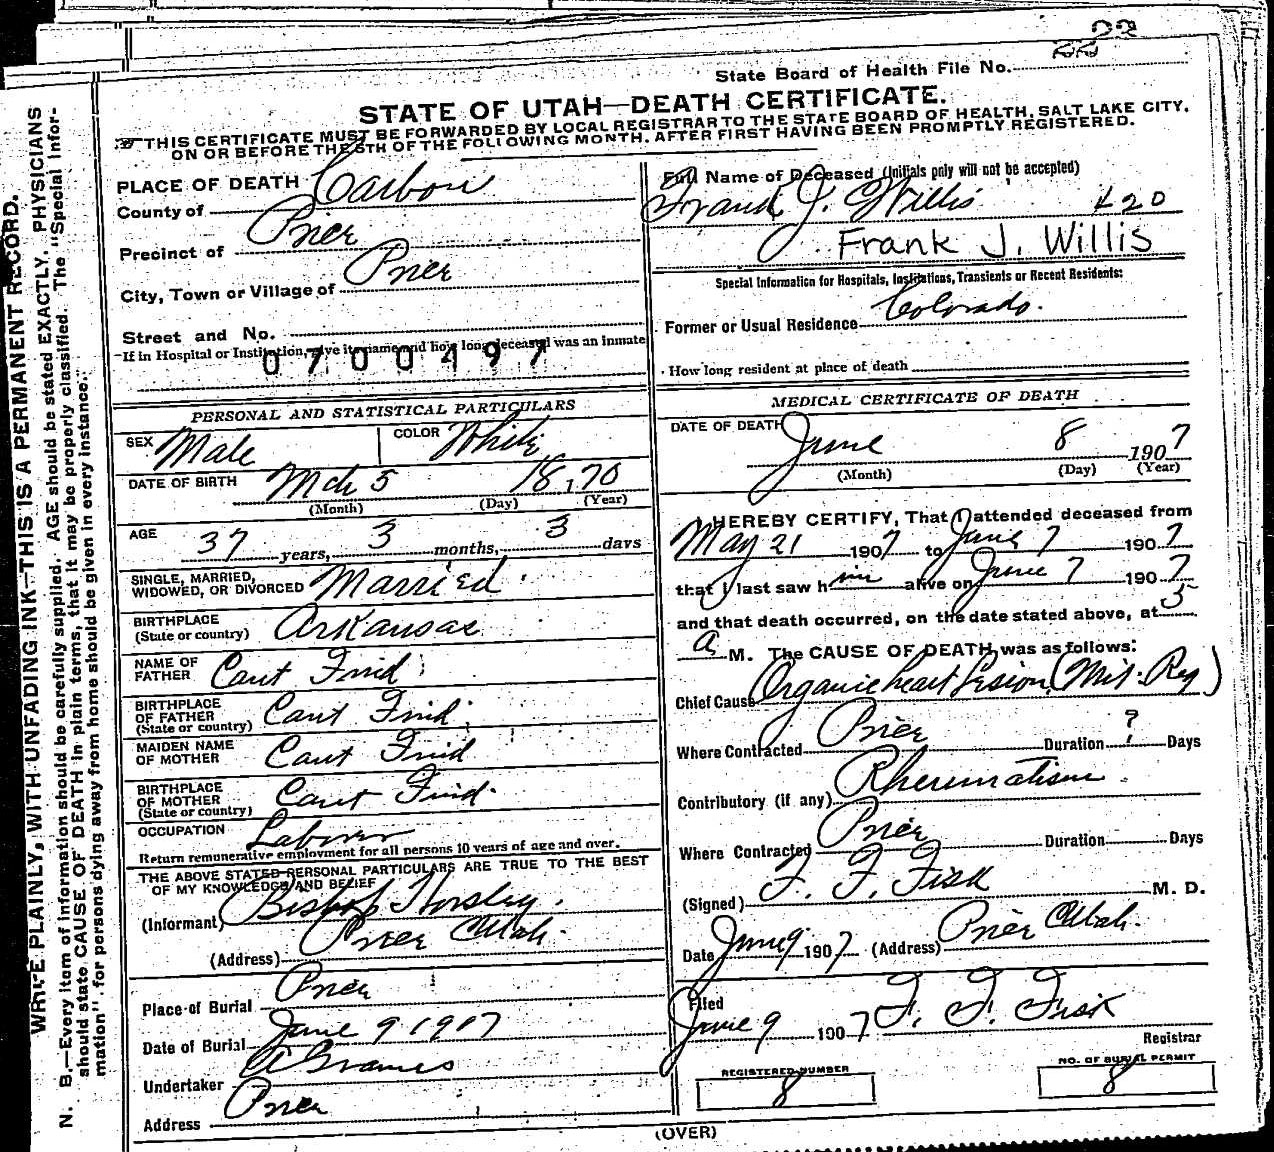 22
State Board of Health File No.
STATE OF UTAH—DEATH CERTIFICATE.
THIS CERTIFICATE MUST BE FORWARDED BY LOCAL REGISTRAR TO THE STATE BOARD OF HEALTH, SALT LAKE CITY,
ON OR BEFORE THE 5TH OF THE FOLLOWING MONTH, AFTER FIRST HAVING BEEN PROMPTLY REGISTERED.
WRITE PLAINLY, WITH UNFADING INK—THIS IS A PERMANENT RECORD.
N. B.—Every item of Information should be carefully supplied. AGE should be stated EXACTLY. PHYSICIANS
should state CAUSE OF DEATH in plain terms, that it may be properly classified. The "Special Infor-
mation" for persons dying away from home should be given in every instance.
PLACE OF DEATH
County of Carbon
Precinct of Price
City, Town or Village of Price
Street and No.
If in Hospital or Institution, give its name and how long deceased was an inmate
0700497
PERSONAL AND STATISTICAL PARTICULARS
SEX Male COLOR White
DATE OF BIRTH Mch 5 1870
(Month) (Day) (Year)
AGE 37 years, 3 months, 3 days
SINGLE, MARRIED,
WIDOWED, OR DIVORCED Married.
BIRTHPLACE
(State or country) Arkansas
NAME OF
FATHER Cant Find
BIRTHPLACE
OF FATHER
(State or country) Cant Find
MAIDEN NAME
OF MOTHER Cant Find
BIRTHPLACE
OF MOTHER
(State or country) Cant Find.
OCCUPATION Laborer
Return remunerative employment for all persons 10 years of age and over.
THE ABOVE STATED PERSONAL PARTICULARS ARE TRUE TO THE BEST
OF MY KNOWLEDGE AND BELIEF
(Informant) Bishop Horsley.
(Address) Price Utah.
Place of Burial Price
Date of Burial June 9 1907
Undertaker
Address Price
Full Name of Deceased (Initials only will not be accepted)
Frank J. Willis 420
Frank J. Willis
Special Information for Hospitals, Institutions, Transients or Recent Residents:
Former or Usual Residence Colorado.
How long resident at place of death
MEDICAL CERTIFICATE OF DEATH
DATE OF DEATH June 8 1907
(Month) (Day) (Year)
I HEREBY CERTIFY, That I attended deceased from
May 21 1907 to June 7 1907
that I last saw him alive on June 7 1907
and that death occurred, on the date stated above, at 5
a M. The CAUSE OF DEATH was as follows:
Chief Cause Organic heart Lesion (Mit. Reg)
Where Contracted Price Duration ? Days
Contributory (if any) Rheumatism.
Where Contracted Price Duration Days
(Signed) F. F. Fisk M. D.
Date June 9 1907 (Address) Price Utah.
Filed
June 9 1907 F. F. Fisk
Registrar
REGISTERED NUMBER
8
NO. OF BURIAL PERMIT
8
(OVER)